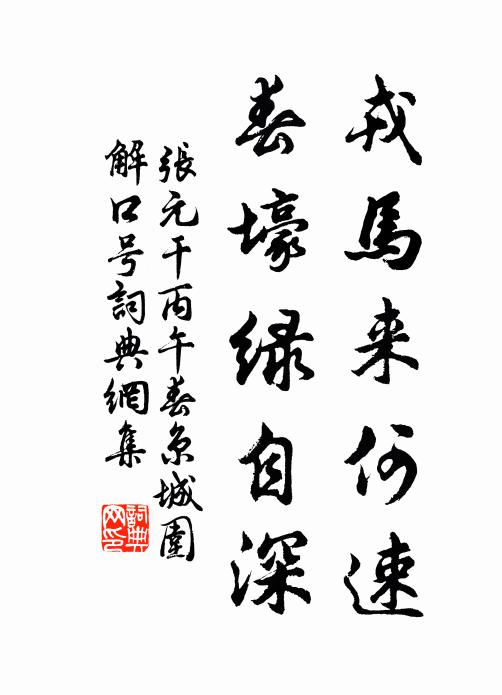 戎馬来何速
春壕緑自深
張元干丙午春京城圍
解口号詞典網集
詞典网印